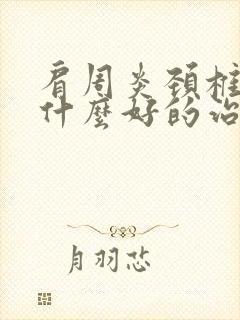 肩周炎颈椎
什麼好的治
月羽芯